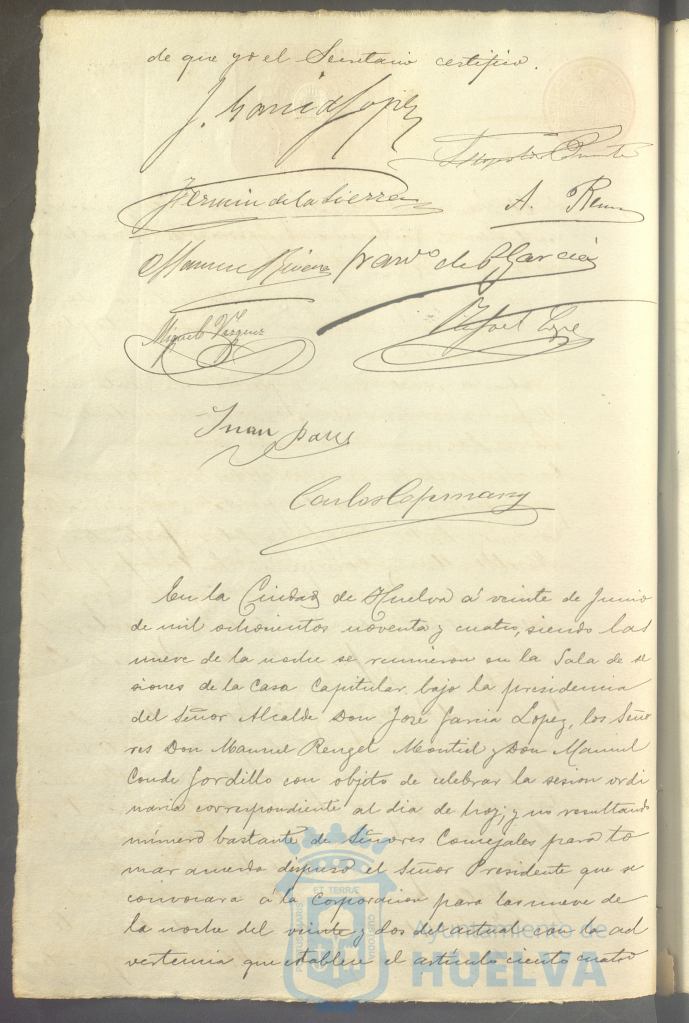 de que yo el Secretario certifico.
J. Garcia Lopez
Fermin de la Sierra
A.
Manuel Rivera
de P. Garcia
Miguel Vazquez
Rafael Lope
Juan
Carlos
En la Ciudad de Huelva á veinte de Junio
de mil ochocientos noventa y cuatro, siendo las
nueve de la noche se reunieron en la Sala de se
siones de la Casa Capitular, bajo la presidencia
del Señor Alcalde Don José Garcia Lopez, los Seño
res Don Manuel Rengel Montiel y Don Manuel
Conde Gordillo con objeto de celebrar la sesion ordi
naria correspondiente al dia de hoy; y no resultando
número bastante de Señores Concejales para to
mar acuerdo dispuso el Señor Presidente que se
convocara á la Corporacion para las nueve de
la noche del veinte y dos del actual con la ad
vertencia que establece el artículo ciento cuatro
ET TERRÆ
PORTUS MARIS
CUSTODIA
Ayuntamiento de
HUELVA